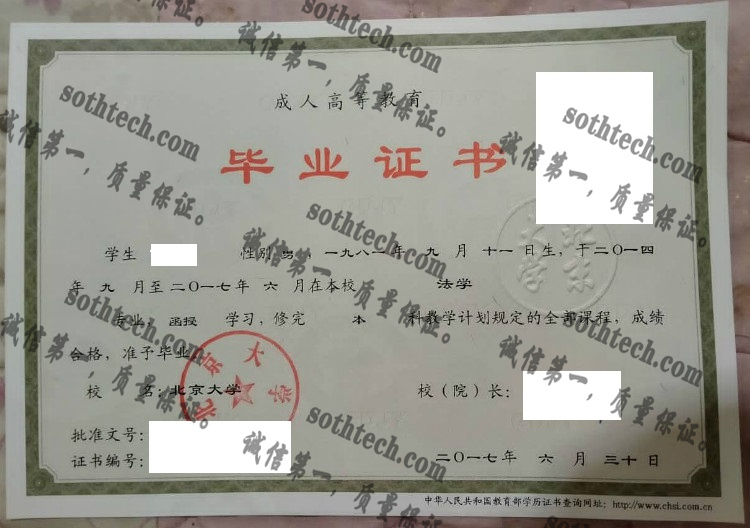 成人高等教育
毕业证书
学生 性别 男，一九八二年 九 月 十一日生，于二〇一四
年 九 月至二〇一七年 六 月在本校 法学
专业， 函授 学习，修完 本 科教学计划规定的全部课程，成绩
合格，准予毕业。
校 名：北京大学 校（院）长：
北京大学
批准文号：
证书编号： 二〇一七年 六 月 三十日
中华人民共和国教育部学历证书查询网址：http://www.chsi.com.cn
sothtech.com
诚信第一，质量保证。
sothtech.com
诚信第一，质量保证。
sothtech.com
诚信第一，质量保证。
sothtech.com
诚信第一，质量保证。
sothtech.com
诚信第一，质量保证。
sothtech.com
诚信第一，质量保证。
sothtech.com
诚信第一，质量保证。
sothtech.com
诚信第一，质量保证。